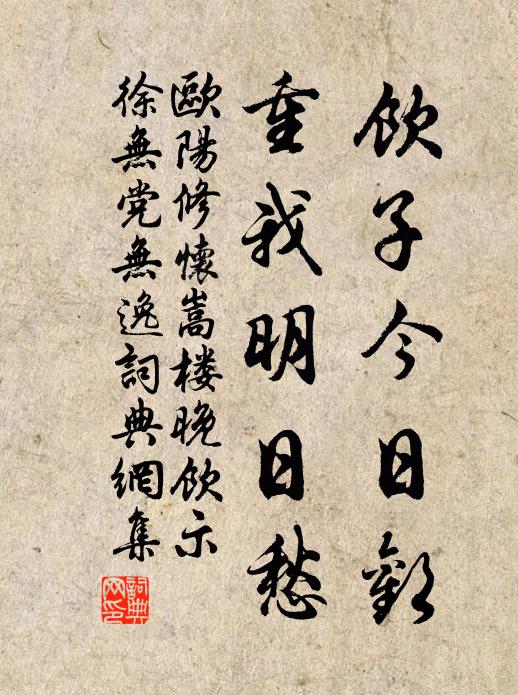 飲子今日歡
重我明日愁
歐陽修懷嵩楼晚飲示
徐無党無逸詞典網集
詞典网印